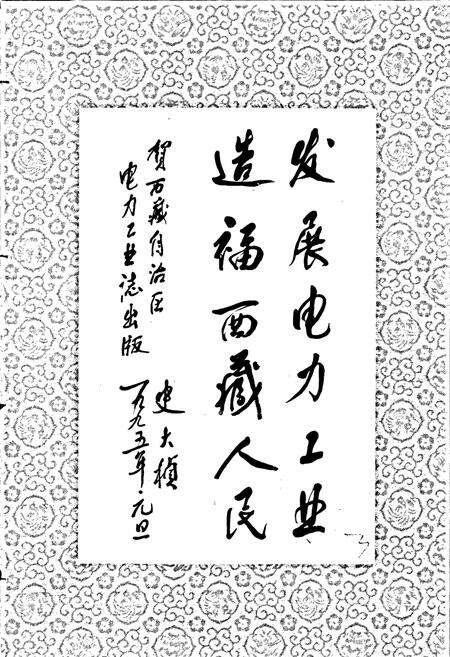 发展电力工业
造福西藏人民
贺西藏自治区
电力工业志出版
史大桢
一九九五年元旦